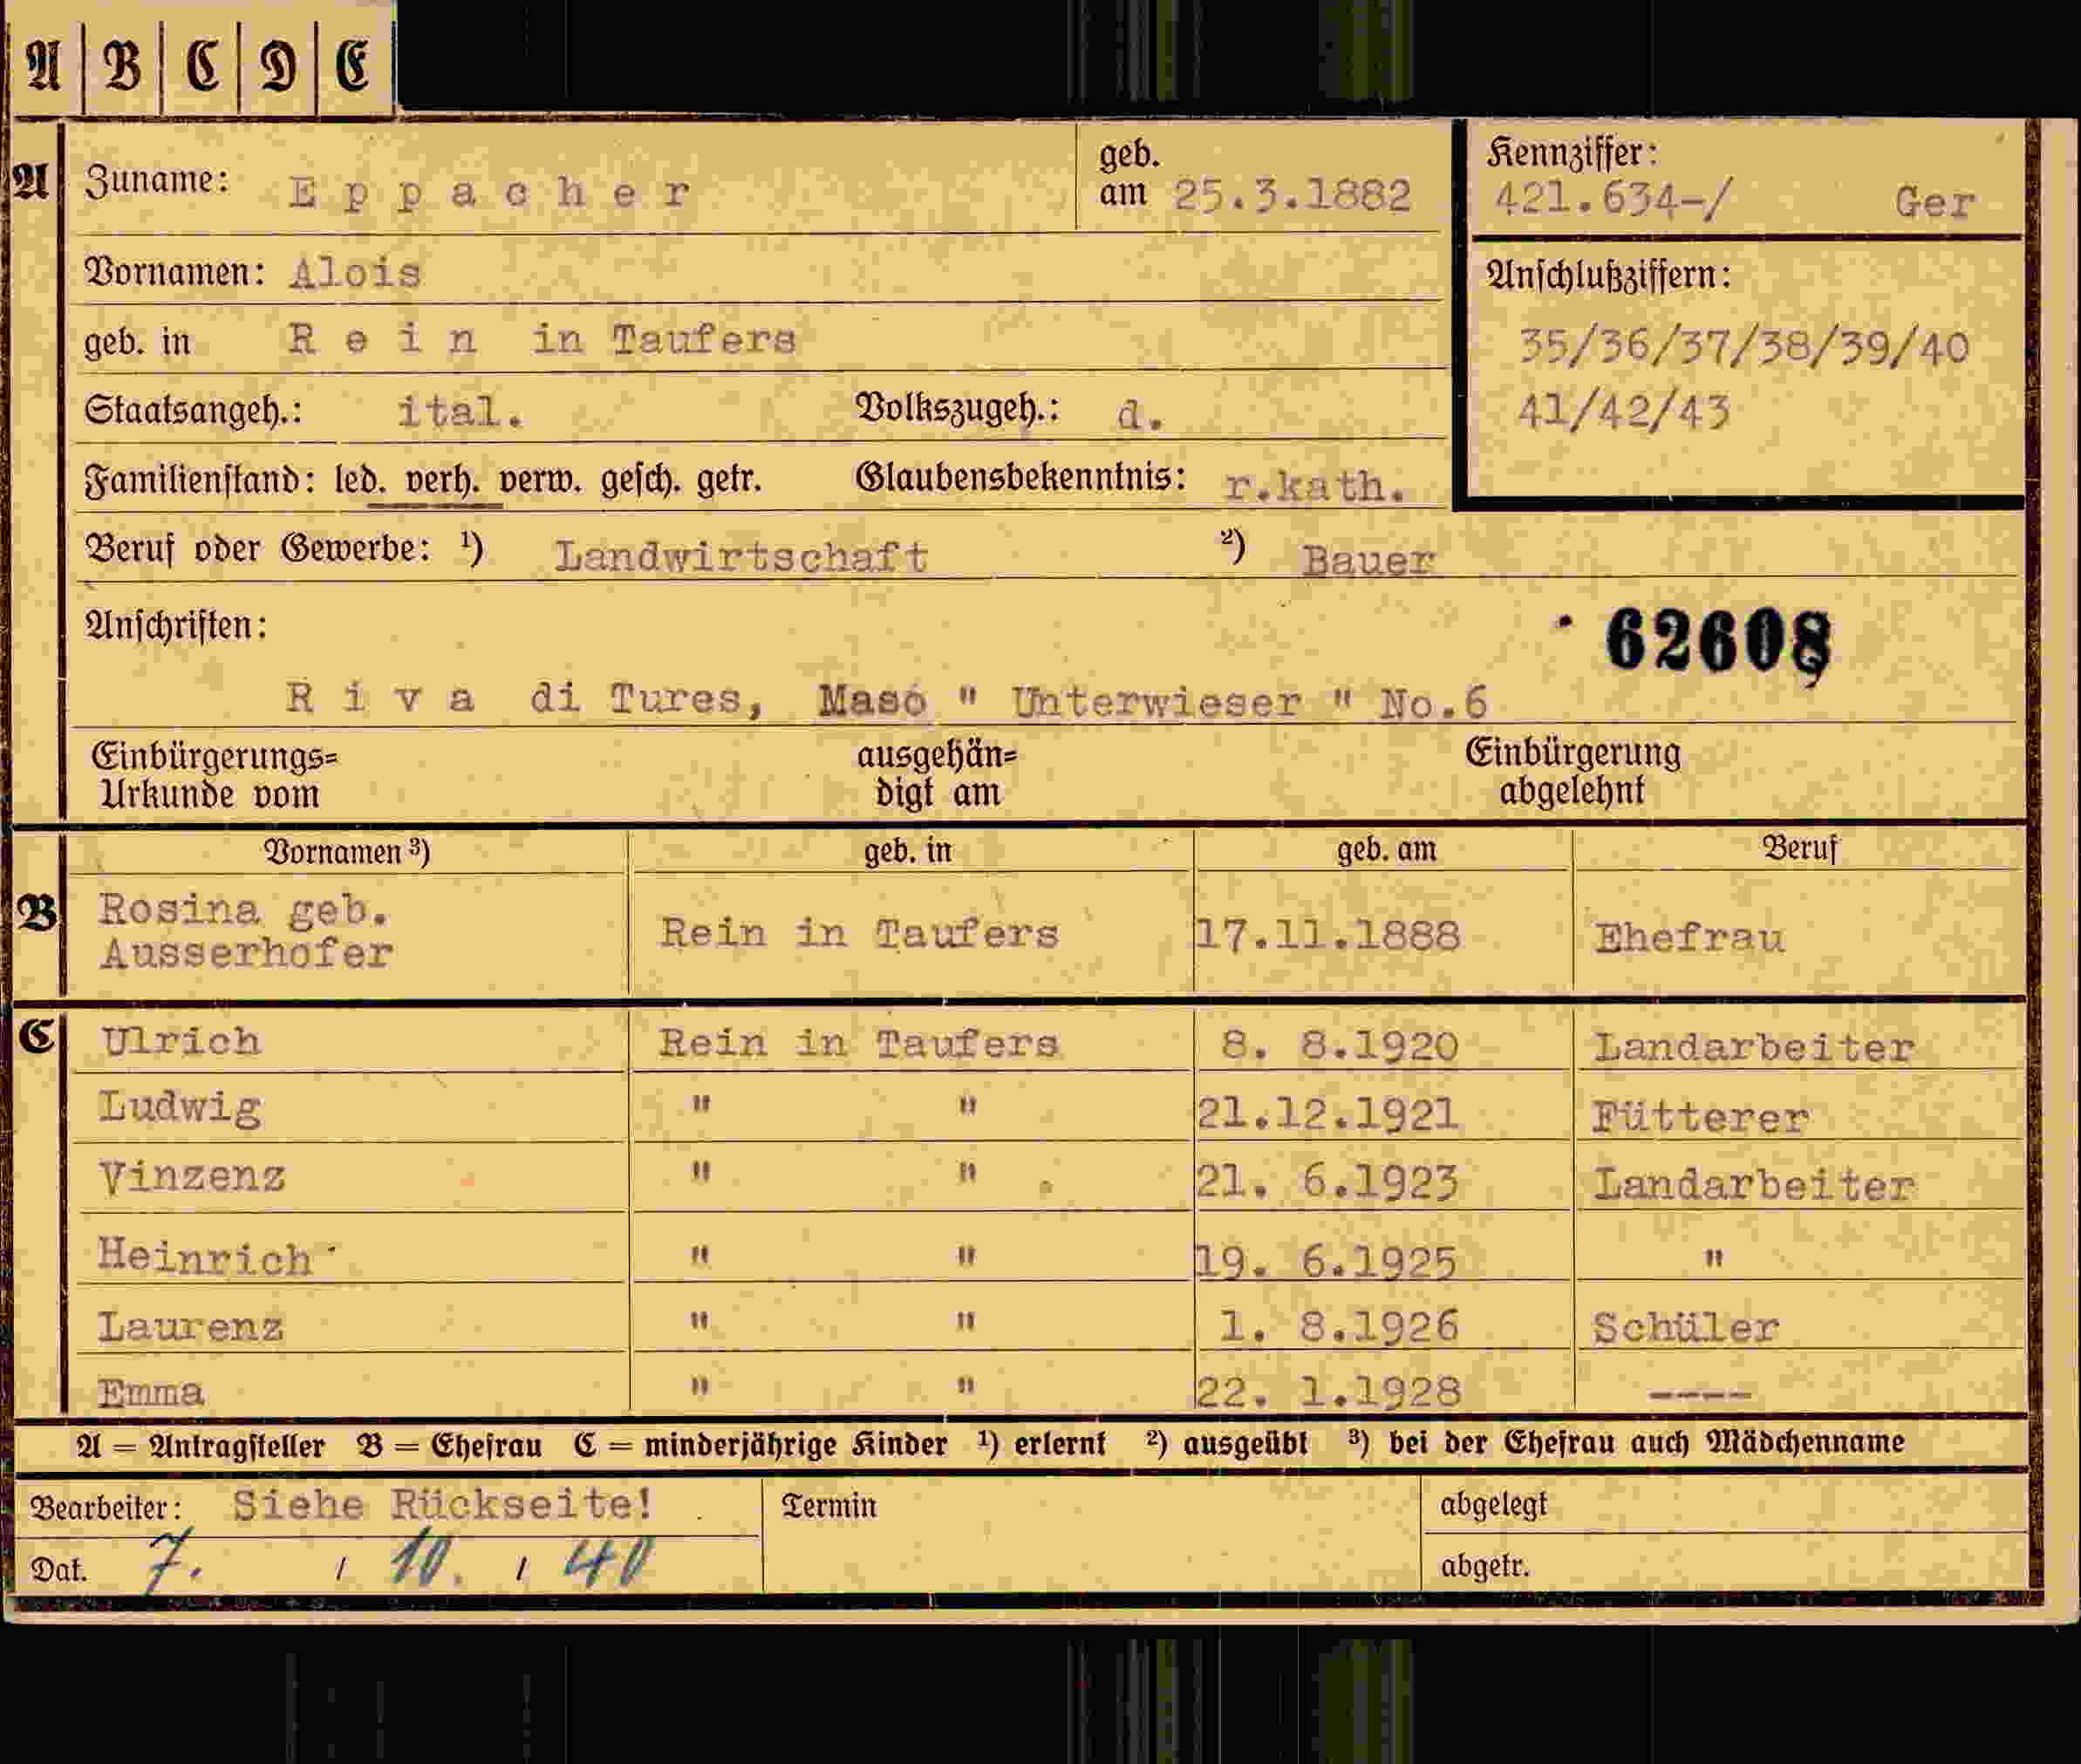 A | B | C | D | E
A Zuname: Eppacher geb. am 25.3.1882
Kennziffer: 421.634-/ Ger
Vornamen: Alois
Anschlußziffern:
35/36/37/38/39/40
41/42/43
geb. in Rein in Taufers
Staatsangeh.: ital. Volkszugeh.: d.
Familienstand: led. verh. verw. gesch. getr. Glaubensbekenntnis: r.kath.
Beruf oder Gewerbe: ¹) Landwirtschaft ²) Bauer
Anschriften:
62608
Riva di Tures, Maso " Unterwieser " No.6
Einbürgerungs=
Urkunde vom
ausgehän=
digt am
Einbürgerung
abgelehnt
Vornamen ³) geb. in geb. am Beruf
B Rosina geb.
Ausserhofer Rein in Taufers 17.11.1888 Ehefrau
C Ulrich Rein in Taufers 8. 8.1920 Landarbeiter
Ludwig " " 21.12.1921 Fütterer
Vinzenz " " 21. 6.1923 Landarbeiter
Heinrich " " 19. 6.1925 "
Laurenz " " 1. 8.1926 Schüler
Emma " " 22. 1.1928 ----
A = Antragsteller B = Ehefrau C = minderjährige Kinder ¹) erlernt ²) ausgeübt ³) bei der Ehefrau auch Mädchenname
Bearbeiter: Siehe Rückseite! Termin abgelegt
Dat. 7. / 10. / 40 abgetr.